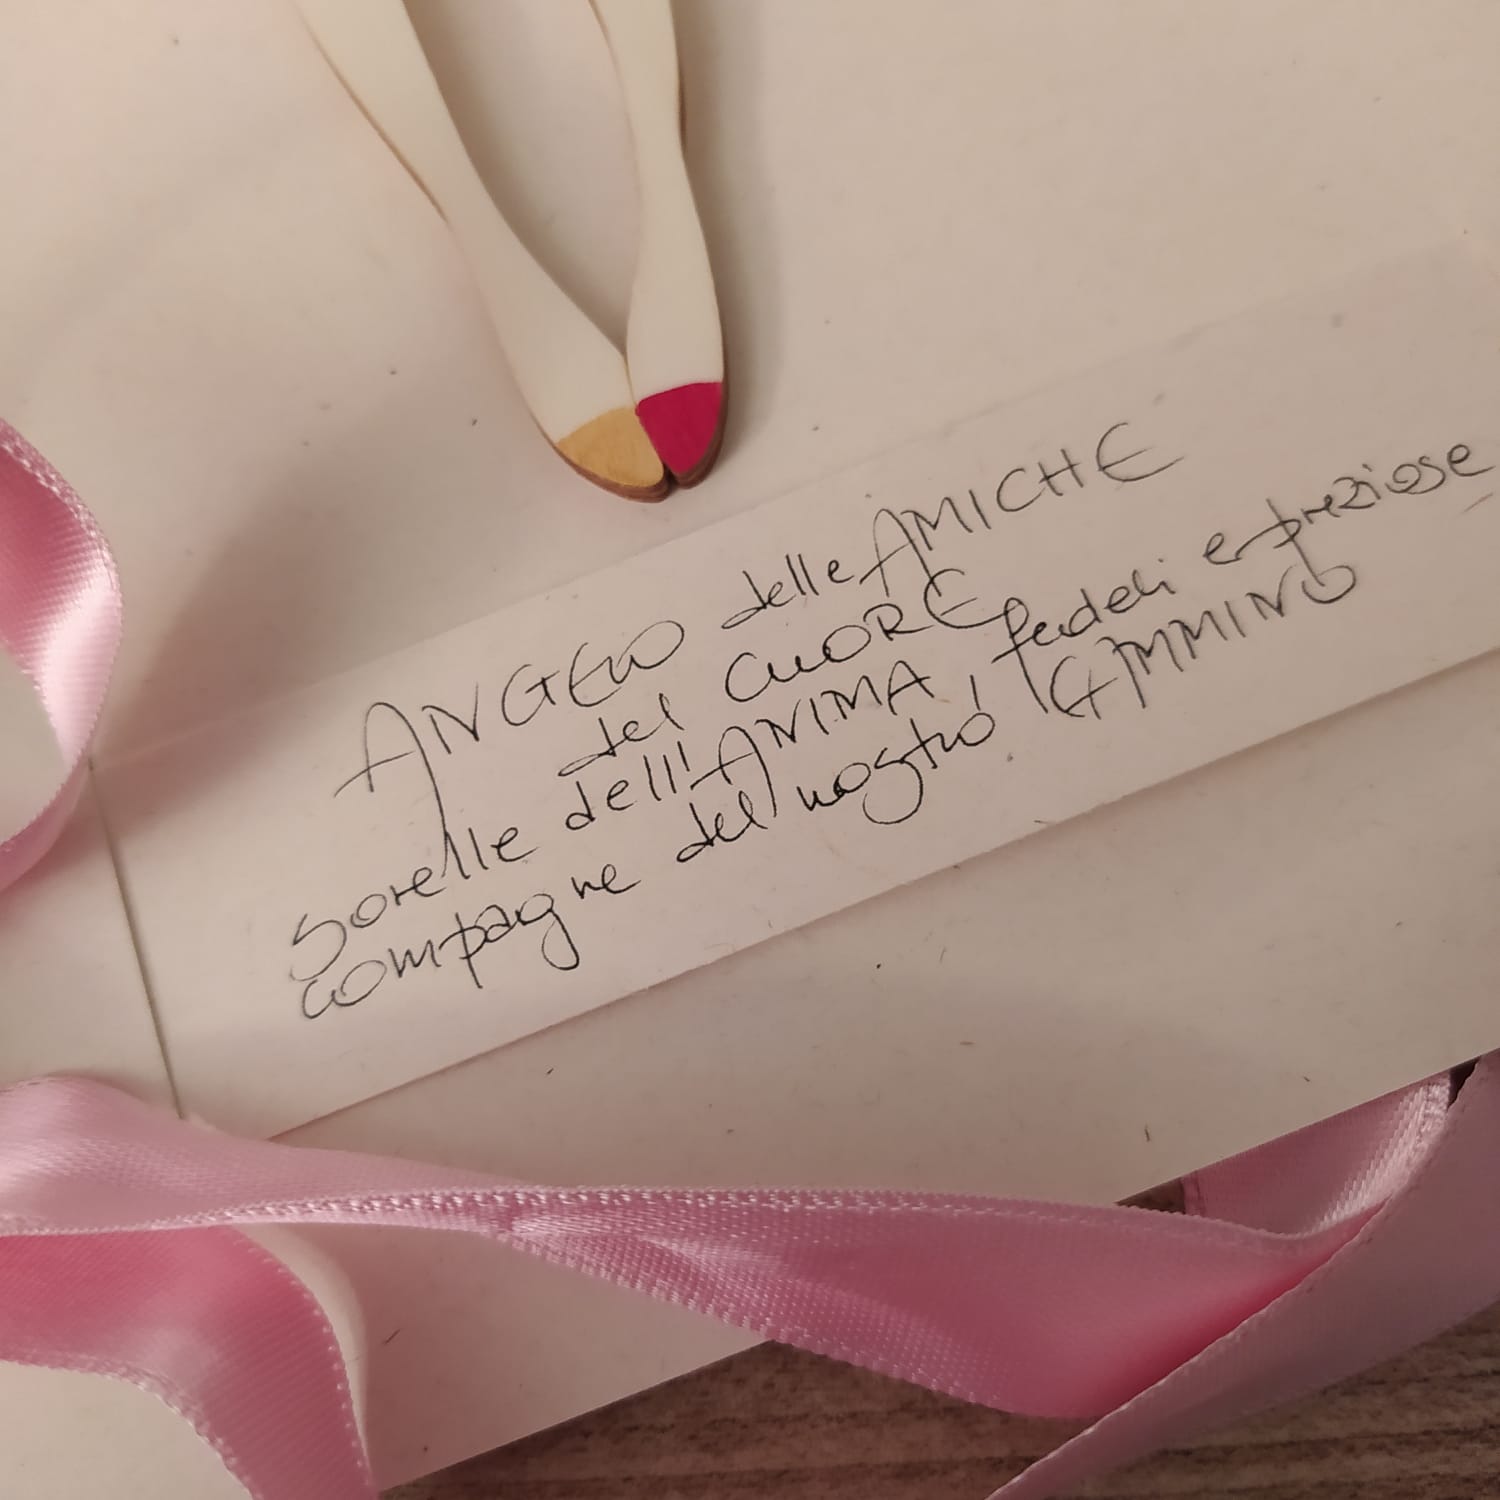 ANGELO delle AMICHE
del CUORE
sorelle dell'ANIMA, fedeli e preziose
compagne del nostro CAMMINO